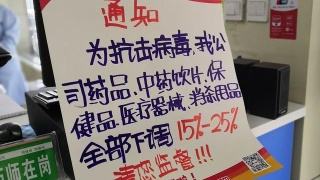 通知
为抗击病毒,我公
司药品、中药饮片、保
健品、医疗器械、消杀用品
全部下调15%-25%
请您监督!!!
药师在岗